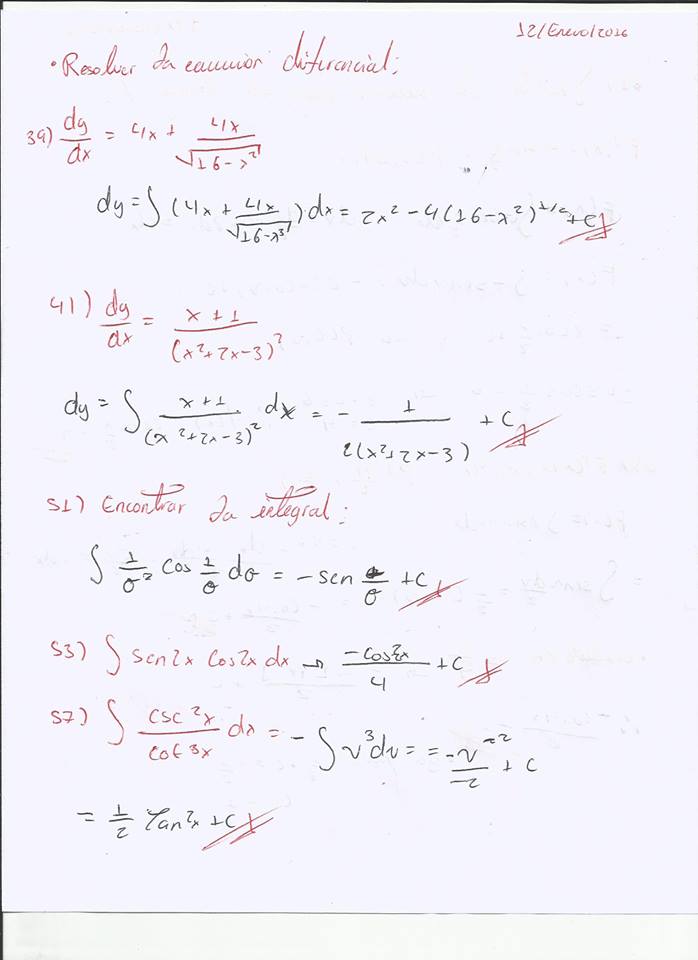 12/Enero/2016
• Resolver la ecuación diferencial;
39) dy/dx = 4x + 4x/√(16-x²)
dy = ∫ (4x + 4x/√(16-x²)) dx = 2x² - 4(16-x²)^(1/2) + C
41) dy/dx = x+1/(x²+2x-3)²
dy = ∫ x+1/(x²+2x-3)² dx = - 1/2(x²+2x-3) + C
51) Encontrar la integral:
∫ 1/θ² cos 1/θ dθ = -sen 1/θ + C
53) ∫ sen2x cos2x dx → -cos²2x/4 + C
57) ∫ csc²x/cot³x dx = - ∫ v³dv = = -v⁻²/-2 + C
= 1/2 Tan²x + C